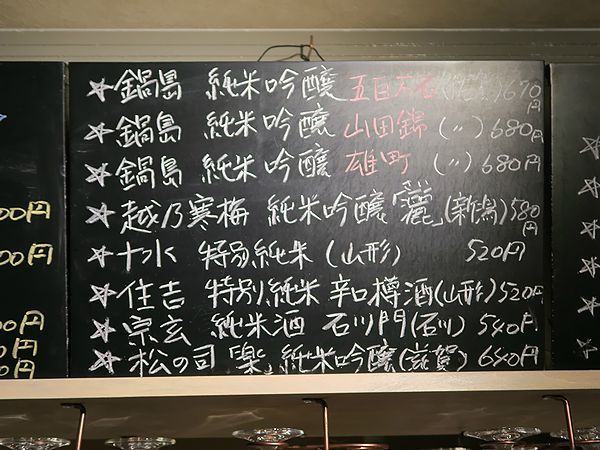 ☆鍋島 純米吟醸 五百万石(佐賀)670円
☆鍋島 純米吟醸 山田錦(〃)680円
☆鍋島 純米吟醸 雄町(〃)680円
☆越乃寒梅 純米吟醸「灑」(新潟)580円
☆十水 特別純米(山形) 520円
☆住吉 特別純米 辛口樽酒(山形)520円
☆宗玄 純米酒 石川門(石川) 540円
☆松の司「楽」純米吟醸(滋賀) 640円
00円
00円
00円
円
円